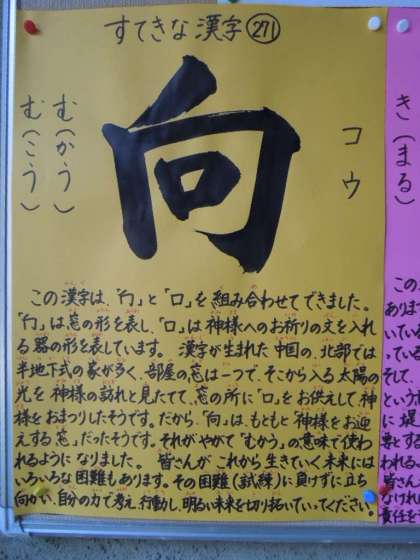 すてきな漢字 271
向
コウ
む(かう)
む(こう)
この漢字は、「勹」と「口」を組み合わせてできました。
「勹」は窓の形を表し、「口」は神様へのお祈りの文を入れ
る器の形を表しています。 漢字が生まれた中国の、北部では
半地下式の家が多く、部屋の窓は一つで、そこから入る太陽の
光を神様の訪れと見たてて、窓の所に「口」をお供えして神
様をおまつりしたそうです。だから、「向」は、もともと「神様をお迎
えする窓」だったそうです。それがやがて「むかう」の意味で使わ
れるようになりました。 皆さんがこれから生きていく未来には
いろいろな困難もあります。その困難(試練)に負けずに立ち
向かい、自分の力で考え、行動し、明るい未来を切り拓いていってください。
き(まる)